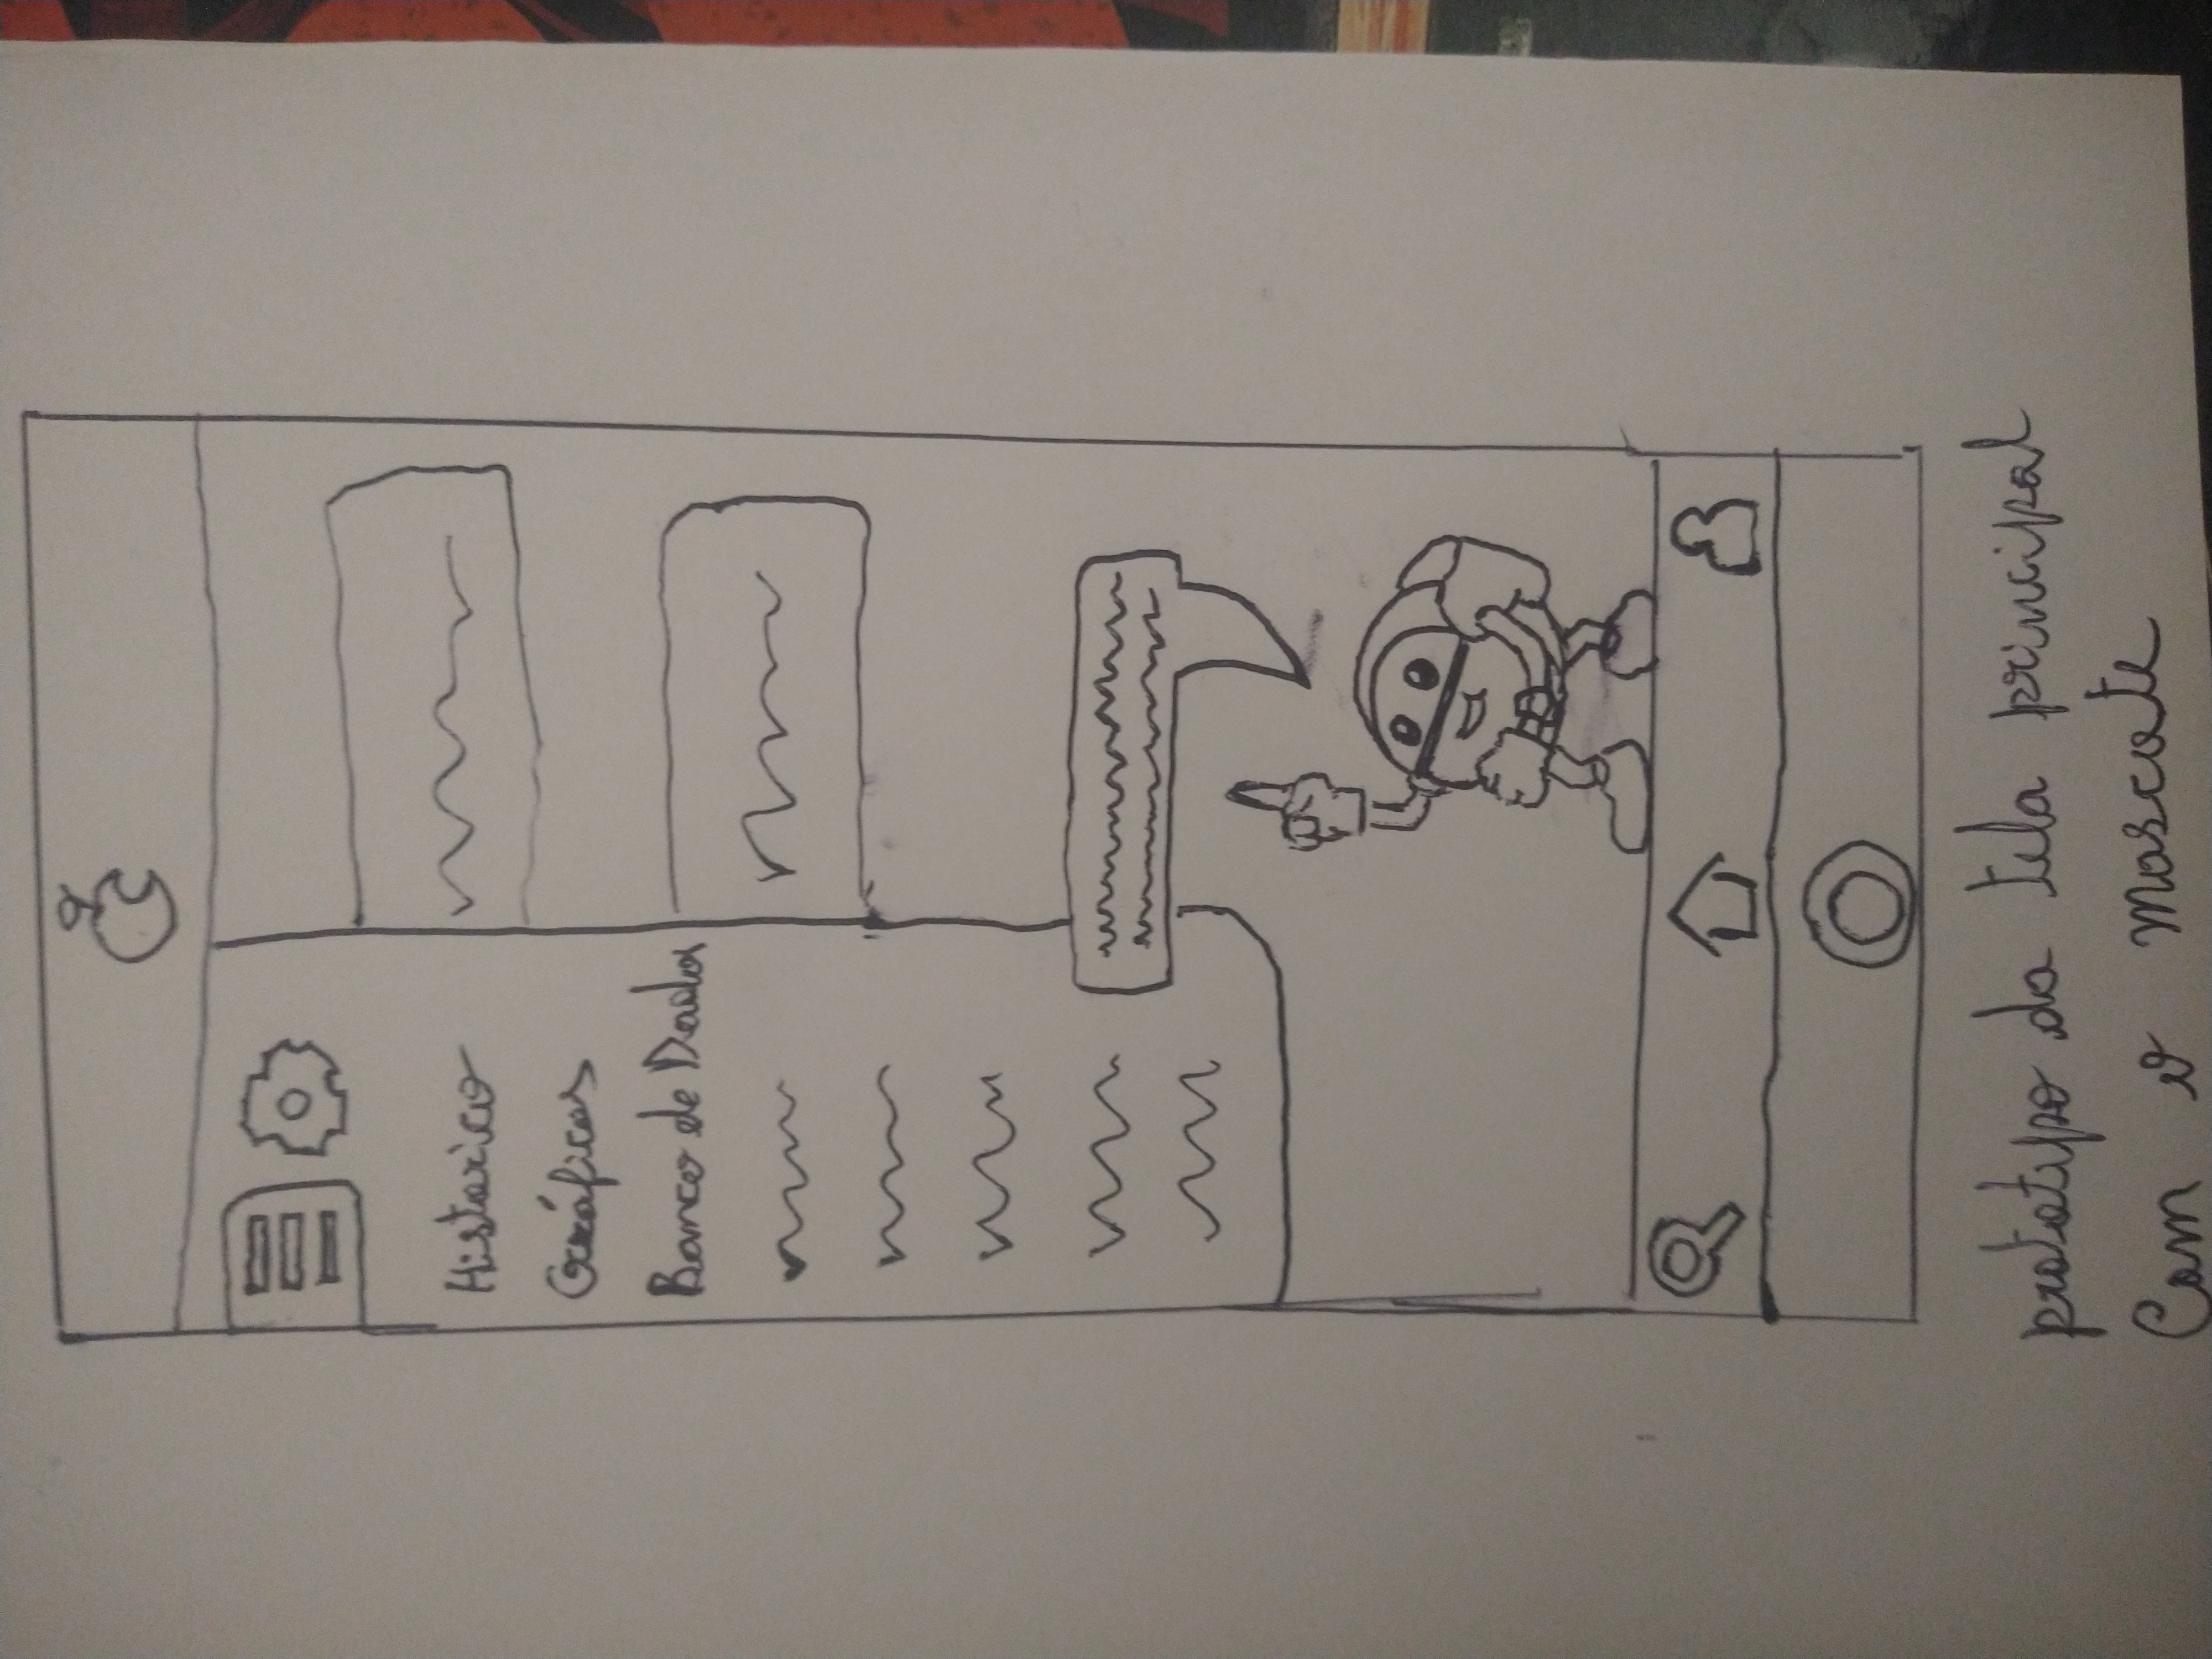 Historico
Gráficos
Banco de Dados
prototipo da tela principal
Com o mascote